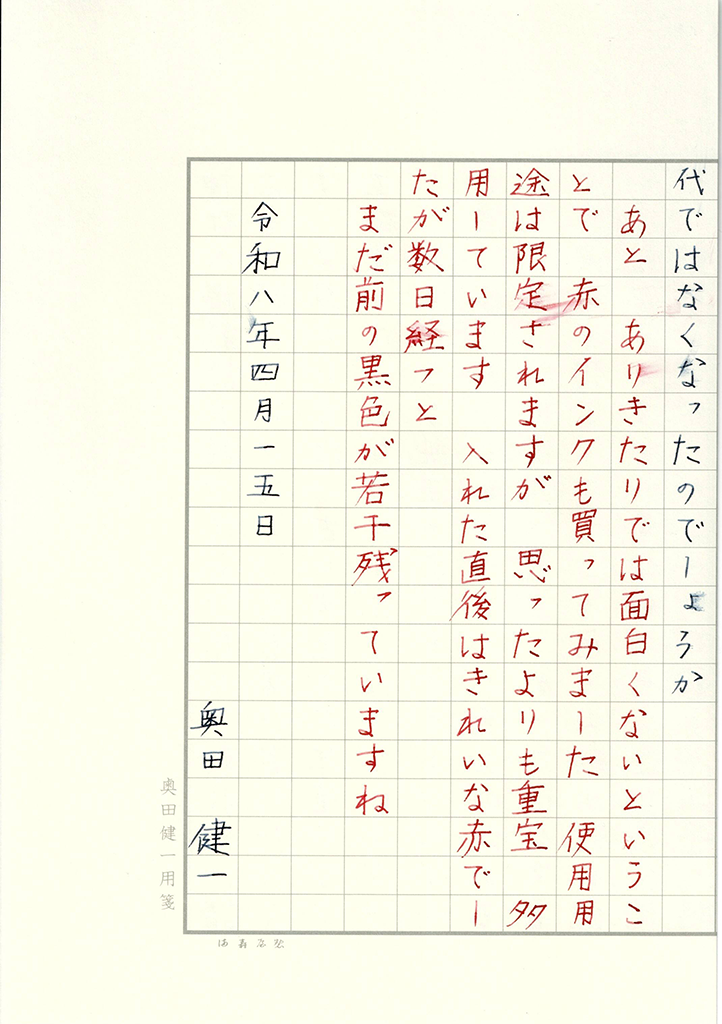 代ではなくなったのでしょうか
あと ありきたりでは面白くないというこ
とで 赤のインクも買ってみました 使用用
途は限定されますが 思ったよりも重宝 多
用しています 入れた直後はきれいな赤でし
たが数日経つと
まだ前の黒色が若干残っていますね
令和八年四月一五日
奥田 健一
奥田健一用箋